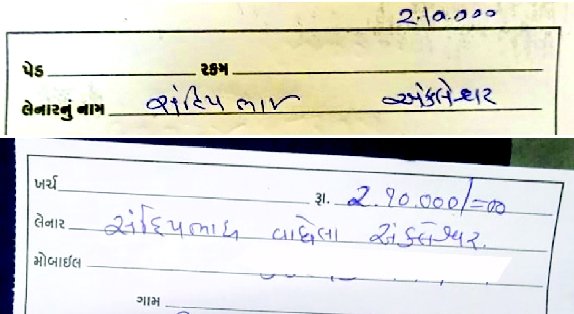 2.10.000
પેડ રકમ
લેનારનું નામ સંદિપ ભાઈ અંકલેશ્વર
ખર્ચ રૂા. 2.૧0.000/=00
લેનાર સંદિપભાઇ વાઘેલા અંકલેશ્વર.
મોબાઈલ
ગામ